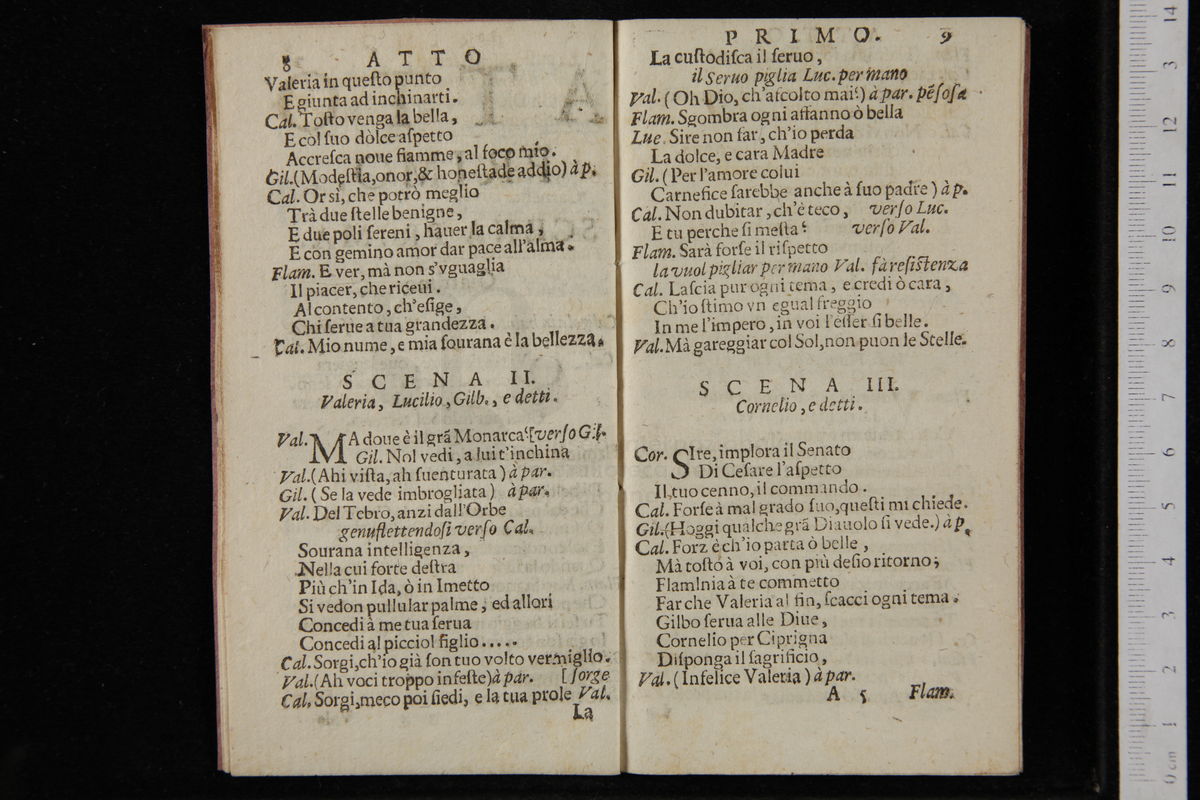 8 ATTO
Valeria in queſto punto
E giunta ad inchinarti.
Cal. Toſto venga la bella,
E col ſuo dolce aſpetto
Accreſca noue fiamme, al foco mio.
Gil. (Modeſtia, onor, & honeſtade addio) à p.
Cal. Or sì, che potrò meglio
Trà due ſtelle benigne,
E due poli ſereni, hauer la calma,
E con gemino amor dar pace all'alma.
Flam. E ver, mà non s'vguaglia
Il piacer, che riceui.
Al contento, ch'eſige,
Chi ſerue a tua grandezza.
Cal. Mio nume, e mia ſourana è la bellezza.
SCENA II.
Valeria, Lucilio, Gilb., e detti.
Val. MA doue è il grã Monarca? [verſo Gil.
Gil. Nol vedi, a lui t'inchina
Val. (Ahi viſta, ah ſuenturata) à par.
Gil. (Se la vede imbrogliata) à par.
Val. Del Tebro, anzi dall'Orbe
genuflettendoſi verſo Cal.
Sourana intelligenza,
Nella cui forte deſtra
Più ch'in Ida, ò in Imetto
Si vedon pullular palme, ed allori
Concedi à me tua ſerua
Concedi al picciol figlio.....
Cal. Sorgi, ch'io già ſon tuo volto vermiglio.
Val. (Ah voci troppo infeſte) à par. [ſorge
Cal. Sorgi, meco poi ſiedi, e la tua prole Val.
La
PRIMO. 9
La cuſtodiſca il ſeruo,
il Seruo piglia Luc. per mano
Val. (Oh Dio, ch'aſcolto mai?) à par. pẽſoſa
Flam. Sgombra ogni affanno ò bella
Luc. Sire non far, ch'io perda
La dolce, e cara Madre
Gil. (Per l'amore colui
Carnefice ſarebbe anche à ſuo padre) à p.
Cal. Non dubitar, ch'è teco, verſo Luc.
E tu perche ſi meſta? verſo Val.
Flam. Sarà forſe il riſpetto
la vuol pigliar per mano Val. fà reſiſtenza
Cal. Laſcia pur ogni tema, e credi ò cara,
Ch'io ſtimo vn egual freggio
In me l'impero, in voi l'eſſer ſi belle.
Val. Mà gareggiar col Sol, non puon le Stelle.
SCENA III.
Cornelio, e detti.
Cor. SIre, implora il Senato
Di Ceſare l'aſpetto
Il tuo cenno, il commando.
Cal. Forſe à mal grado ſuo, queſti mi chiede.
Gil. (Hoggi qualche grã Diauolo ſi vede.) à p.
Cal. Forz è ch'io parta ò belle,
Mà toſto à voi, con più deſio ritorno;
Flaminia à te commetto
Far che Valeria al fin, ſcacci ogni tema.
Gilbo ſerua alle Diue,
Cornelio per Ciprigna
Diſponga il ſagrificio,
Val. (Infelice Valeria) à par.
A 5 Flam.
14
3
12
11
10
9
8
7
6
5
4
3
2
1
0 cm